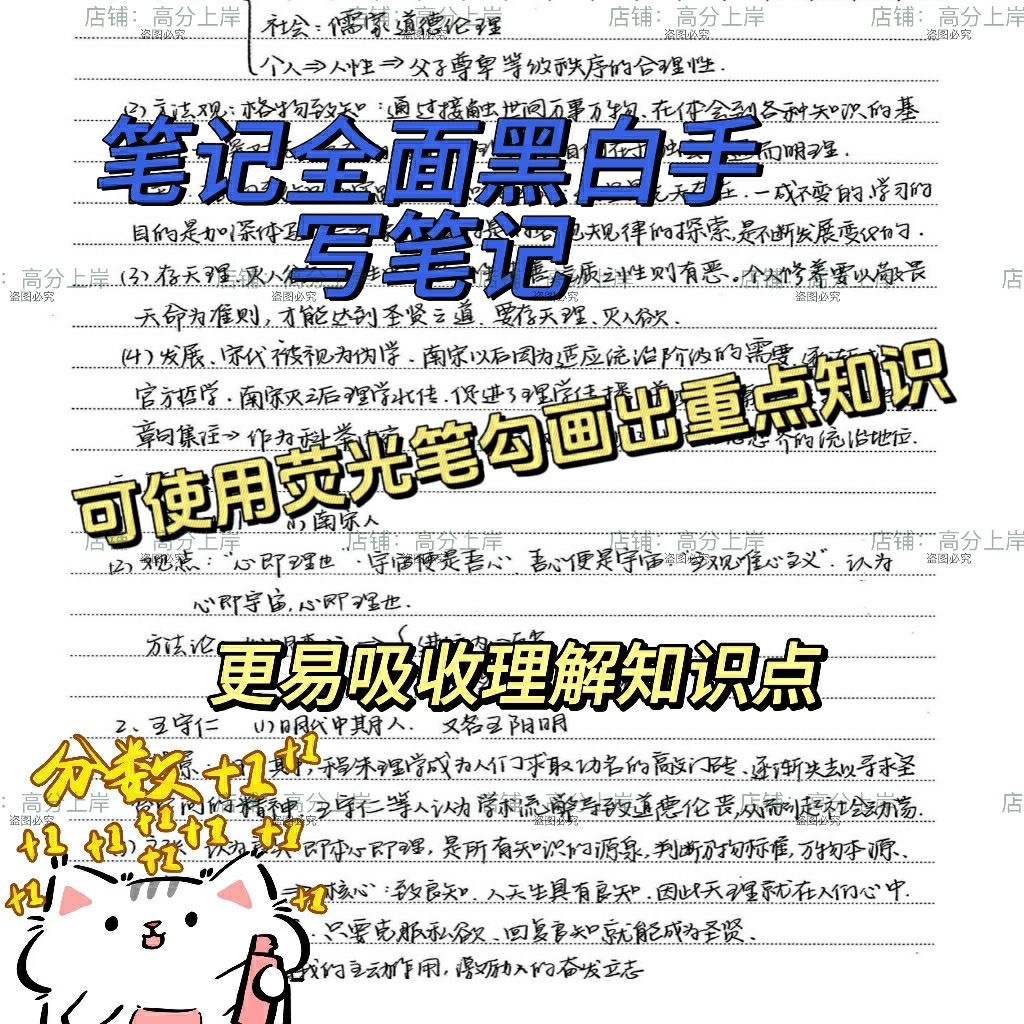 店铺：高分上岸 店铺：高分上岸 店铺：高分上岸
盗图必究 盗图必究 盗图必究
社会：儒家道德伦理
个人⇒人性⇒父子尊卑等级秩序的合理性.
(2)方法观：格物致知：通过接触世间万事万物，在体会到各种知识的基
而明理.
笔记全面黑白手
写笔记
一成不变的，学习的
目的是加深体
规律的探索，是不断发展变化的.
：高分上岸
盗图必究 盗图必究 盗图必究
(3)存天理，灭人欲
质之性则有恶。个人修养需要以敬畏
天命为准则，才能达到圣贤之道，要存天理、灭人欲.
(4)发展、宋代被视为伪学，南宋以后因为适应统治阶级的需要
官方哲学.南宋灭亡后理学北传，促进了理学传播
章句集注⇒作为科举
的统治地位.
可使用荧光笔勾画出重点知识
(1)南宋人
店铺：高分上岸 店铺：高分上岸 店铺：高分上岸
盗图必究 盗图必究 盗图必究
(2)观点："心即理也"·宇宙便是吾心 吾心便是宇宙 主观唯心主义"．认为
心即宇宙，心即理也.
方法论
更易吸收理解知识点
2、王守仁 (1)明代中期人． 又名王阳明
程朱理学成为人们求取功名的敲门砖、逐渐失去以寻求圣
：高分上岸
盗图必究 盗图必究
的精神．王守仁等人认为学术流弊导致道德伦丧，从而引起社会动荡.
即本心即理，是所有知识的源泉，判断万物标准，万物本源、
核心：致良知．人天生具有良知．因此天理就在人们心中.
只要克服私欲、回复良知就能成为圣贤.
的主动作用，激励人的奋发立志
分数+1+1+1
+1 +1 +1 +1 +1 +1
+1 +1